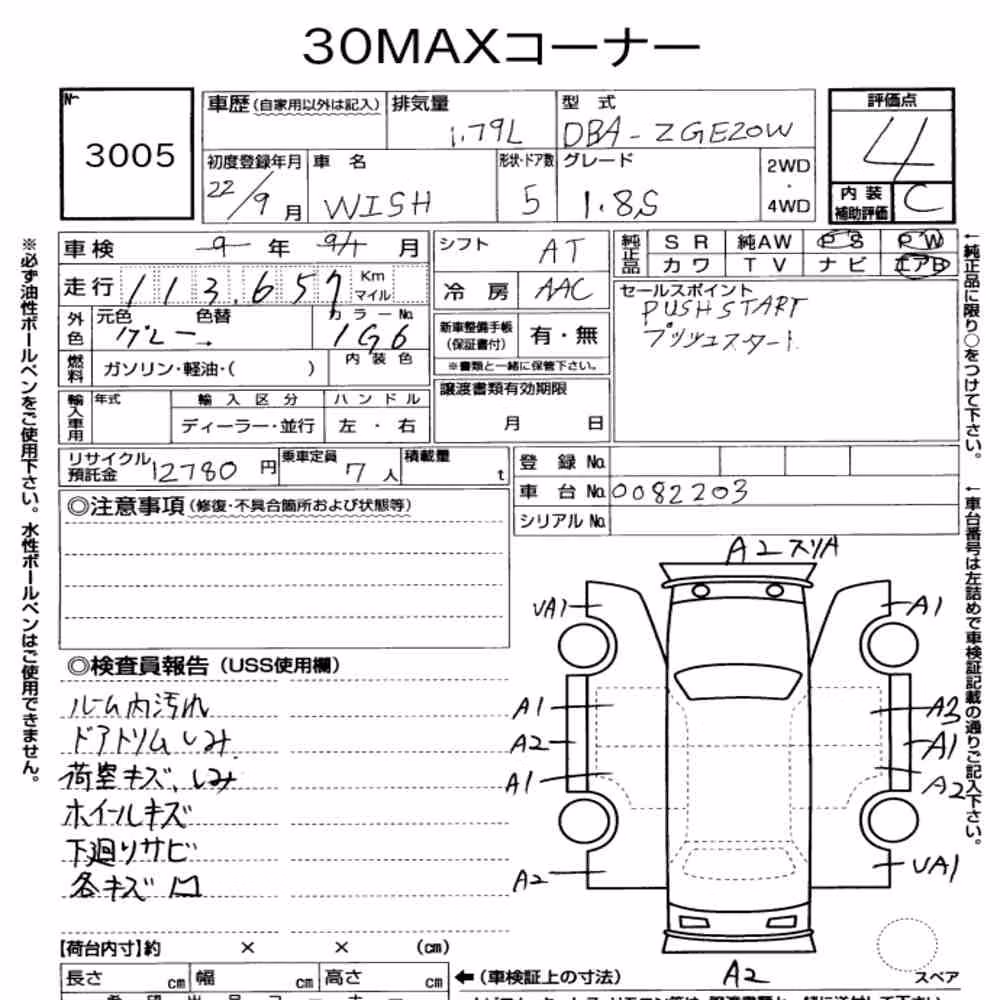 30MAXコーナー
№
3005
車歴(自家用以外は記入)
排気量
1.79L
型式
DBA-ZGE20W
評価点
4
初度登録年月
22/9月
車名
WISH
形状・ドア数
5
グレード
1.8S
2WD
・
4WD
内装
補助評価
C
※必ず油性ボールペンをご使用下さい。水性ボールペンはご使用できません。
車検
9年 9/1月
シフト
AT
純正品
SR
純AW
PS
PW
カワ
TV
ナビ
エアB
走行
113.657
Km
マイル
冷房
AAC
セールスポイント
PUSH START
プッシュスタート
外色
元色
グレー→
色替
カラーNo.
1G6
新車整備手帳
(保証書付)
有・無
※書類と一緒に保管下さい。
燃料
ガソリン・軽油・( )
内装色
輸入車用
年式
輸入区分
ディーラー・並行
ハンドル
左・右
譲渡書類有効期限
月 日
←純正品に限り○をつけて下さい。
リサイクル
預託金
12780円
乗車定員
7人
積載量
t
登録No.
車台No.
0082203
シリアルNo.
←車台番号は左詰めで車検証記載の通りご記入下さい。
◎注意事項(修復・不具合箇所および状態等)
◎検査員報告(USS使用欄)
ルーム内汚れ
ドアトリムしみ
荷室キズ、しみ
ホイールキズ
下廻りサビ
各キズ凹
A2スリA
UA1
A1
A1
A3
A2
A1
A1
A2
A2
UA1
A2
スペア
【荷台内寸】約 × × (cm)
長さ cm
幅 cm
高さ cm
←(車検証上の寸法)